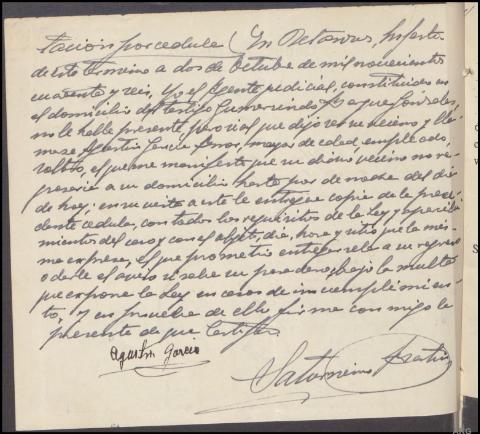 tación por cedula (En Octavas,
de este termino a dos de Octubre de mil novecientos
cuarenta y seis, Yo el Agente judicial, constituido en
el domicilio del testigo Gumersindo González,
no le halle presente, pero si al que dijo ser su vecino y lla-
marse Agustin Garcia mayor de edad, empleado,
el que me manifesto que su dicho vecino no re-
gresaria a su domicilio hasta por la noche del dia
de hoy; en su vista a este le entregue copia de la prece-
dente cedula, con todos los requisitos de la Ley y apercibi-
mientos del caso y con el objeto, dia, hora y sitio que la mis-
ma expresa, el que prometio entregarsela a su regreso
o darle el aviso si sabe su paradero, bajo la multa
que expone la Ley en casos de incumplimien-
to, Y en prueba de ello firma con migo la
presente de que Certifico.
Agustin Garcia
Saturnino